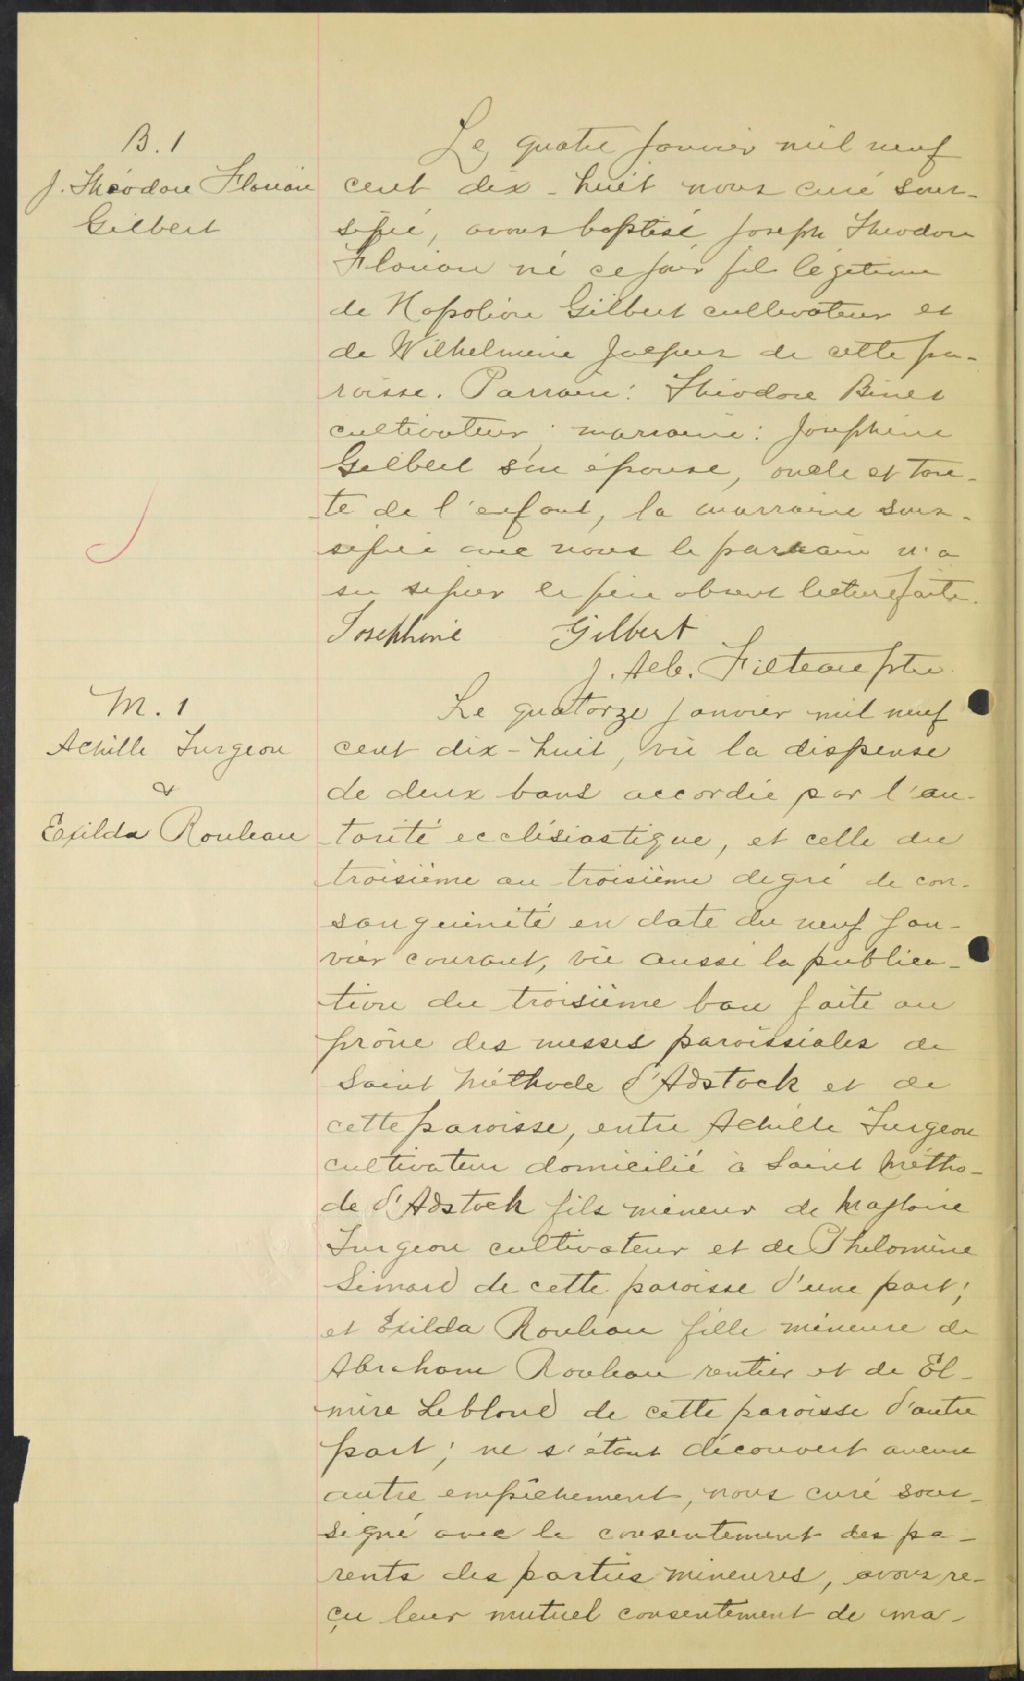 B. 1
J. Théodore Florian
Gilbert
Le quatre janvier mil neuf
cent dix-huit nous curé sous-
signé, avons baptisé Joseph Theodore
Florian né ce jour fils légitime
de Napoléon Gilbert cultivateur et
de Wilhelmine Jacques de cette pa-
roisse. Parrain: Théodore Binet
cultivateur; marraine: Josephine
Gilbert son épouse, oncle et tan-
te de l'enfant, la marraine sous-
signée avec nous le parrain n'a
su signer le père absent lecture faite.
Josephine Gilbert
J. Alb. Filteau ptre
M. 1
Achille Turgeon
&
Exilda Rouleau
Le quatorze janvier mil neuf
cent dix-huit, vu la dispense
de deux bans accordée par l'au-
torité ecclésiastique, et celle du
troisième au troisième degré de con-
sanguinité en date du neuf jan-
vier courant, vu aussi la publica-
tion du troisième ban faite au
prône des messes paroissiales de
Saint Méthode d'Adstock et de
cette paroisse, entre Achille Turgeon
cultivateur domicilié à Saint Métho-
de d'Adstock fils mineur de Magloire
Turgeon cultivateur et de Philomène
Simard de cette paroisse d'une part;
et Exilda Rouleau fille mineure de
Abraham Rouleau rentier et de El-
mire Leblond de cette paroisse d'autre
part; ne s'étant découvert aucun
autre empêchement, nous curé sous-
signé avec le consentement des pa-
rents des parties mineures, avons re-
çu leur mutuel consentement de ma-